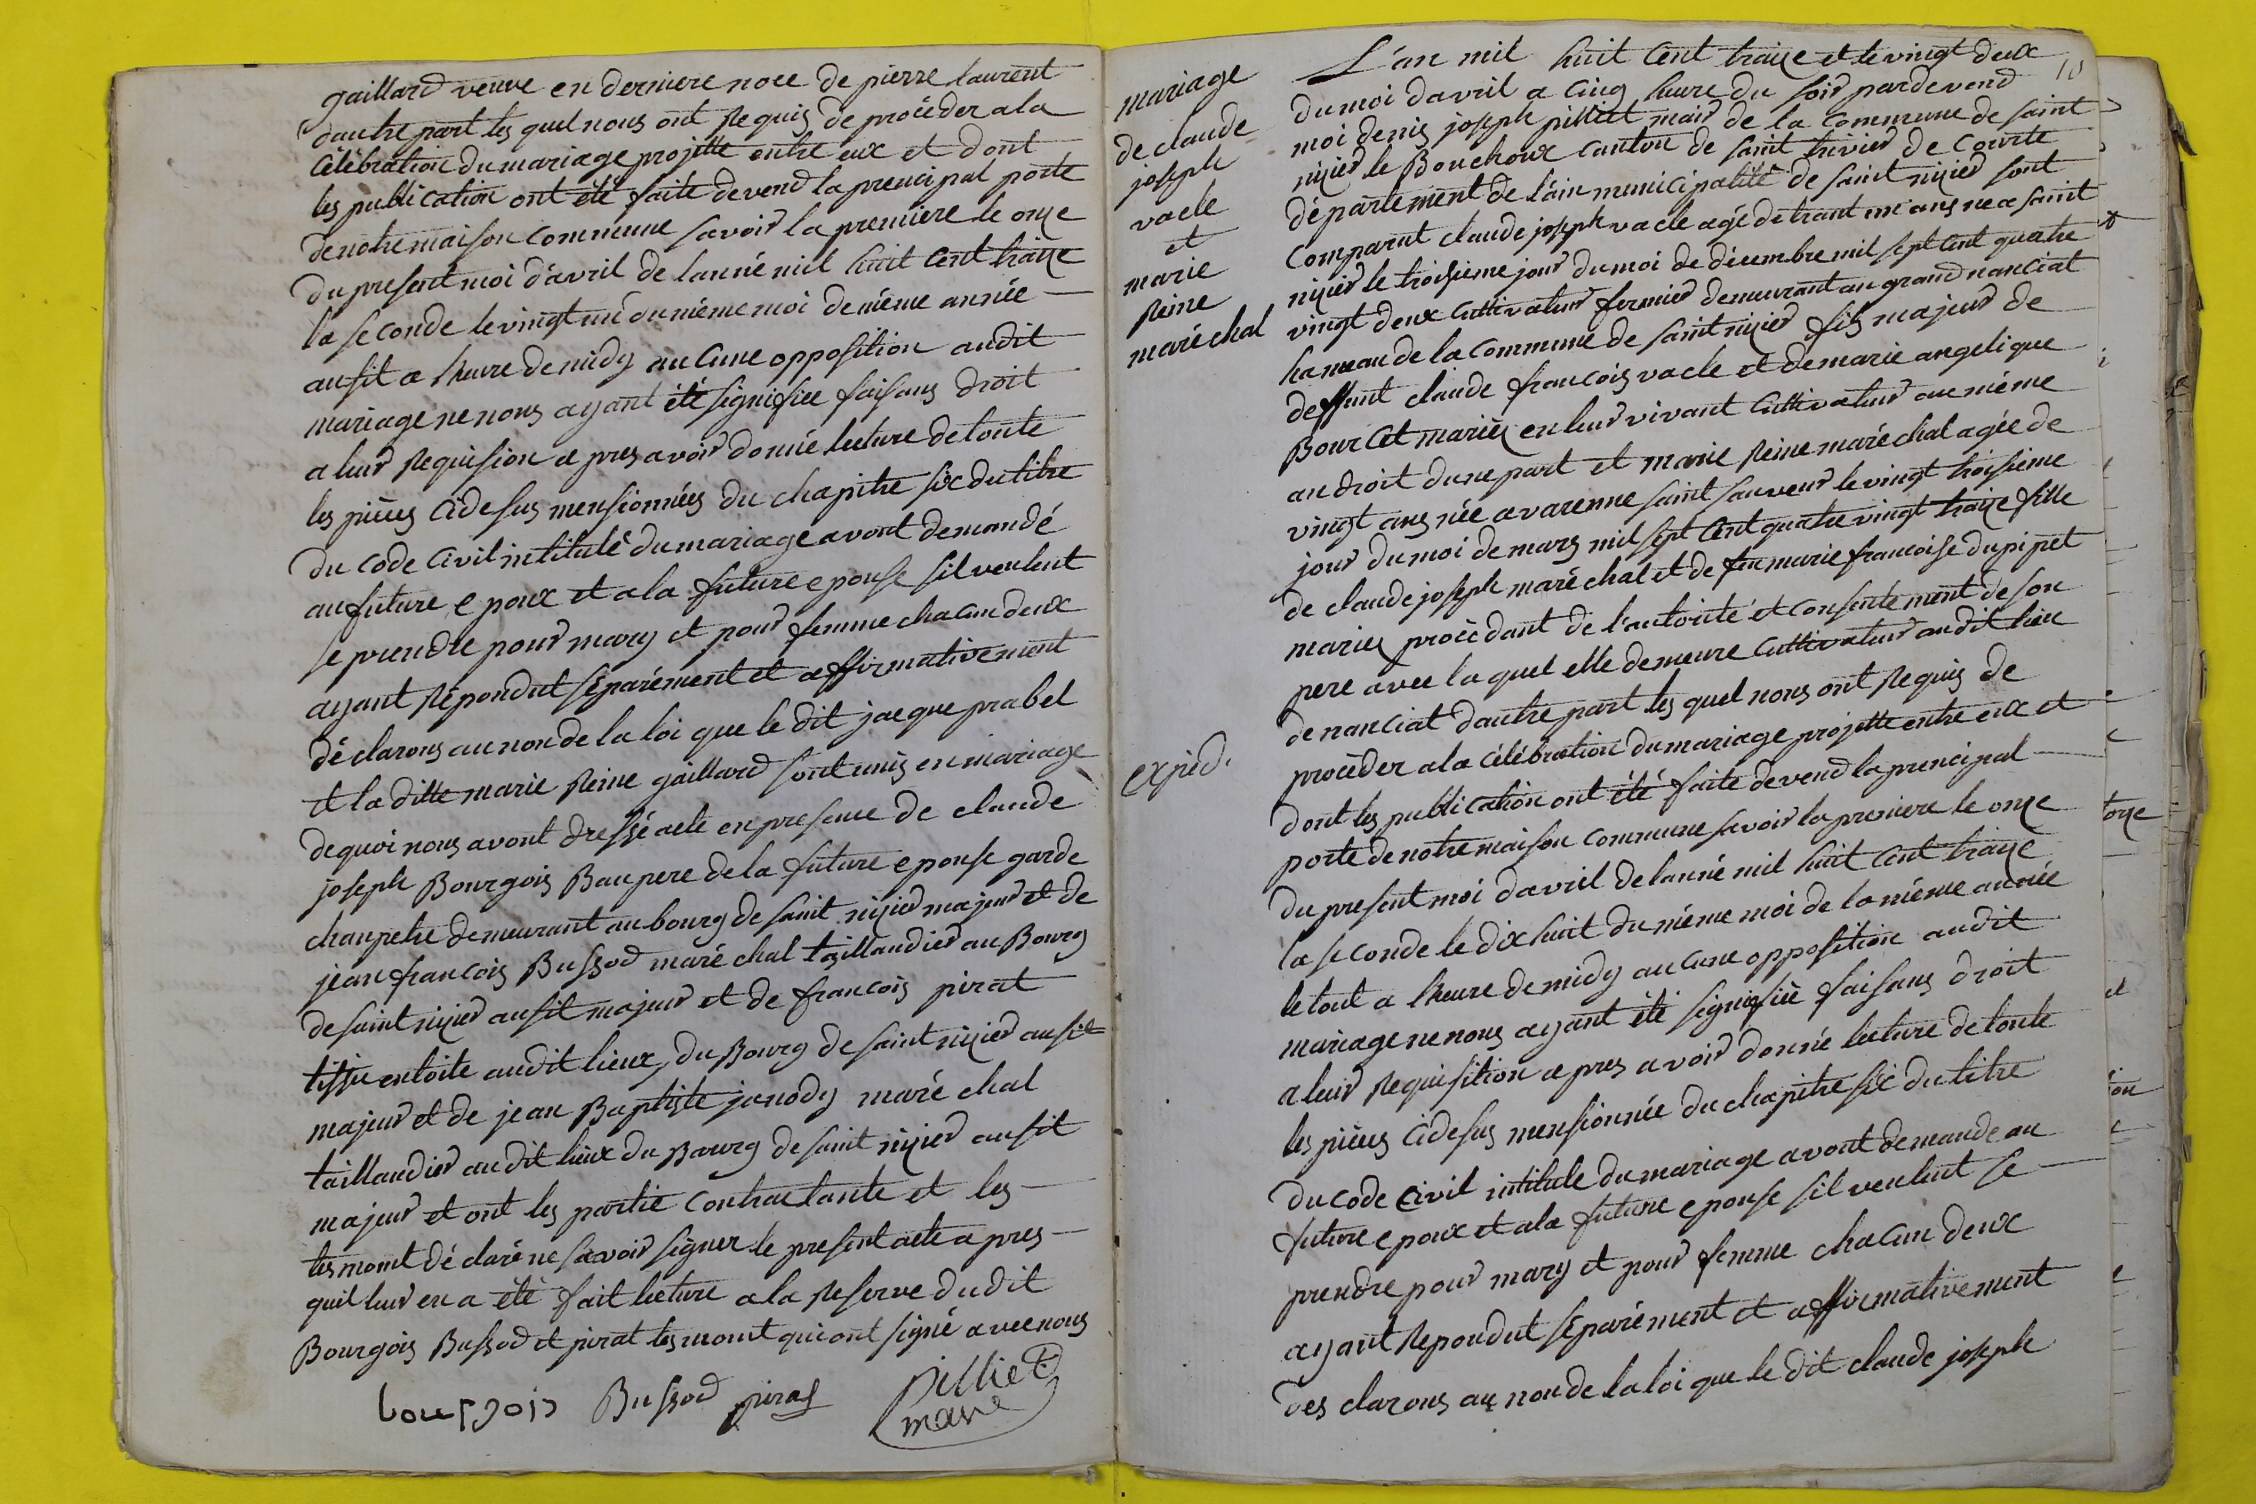 gaillard veuve en derniere noce de pierre laurent
dautre part les quel nous ont Requis de procéder a la
Célébration du mariage projette entre eux et dont
les publication ont été faite devend la prencipal porte
de notre maison commune savoir la premiere le onze
du present moi davril de lanné mil huit Cent traize
la seconde le vingt un du méme moi de méme année
ausit a lheure de midy aucune opposition audit
mariage ne nous ayant été signifiee faisans droit
a leur Requision apres avoir donné lecture de toute
les pièces Cidesus mensionnées du chapitre six du titre
du Code Civil intitulé du mariage avont demandé
au future epoux et a la future epouse sil veulent
se prendre pour mary et pour femme chacun deux
ayant Répondut séparément et affirmativement
déclarons au non de la loi que le dit jacque prabel
et la ditte marie Reine gaillard sont unis en mariage
de quoi nous avont dressé acte en presence de claude
joseph Bourgois Baupere de la future epouse garde
chanpetre demeurant au bourg de saint nizier majeur et de
jean francois Bussod maréchal taillandier au Bourg
de saint nizier ausit majeur et de francois pirat
tissie entoite audit lieux du Bourg de saint nizier ausit
majeur et de jean Baptiste janody maré chal
taillandier audit lieux du Bourg de saint nizier ausit
majeur et ont les partie Contractante et les
tesmoint déclaré ne savoir signer le present acte apres
quil leur en a été fait lecture a la Reserve dudit
Bourgois Bussod et pirat tesmoint qui ont signé avec nous
bourgois Bussod pirat pilliet
maire
10
mariage
de claude
joseph
vacle
et
marie
Reine
maréchal
expéd.
L'an mil huit Cent traize et le vingt deux
du moi davril a Cinq heure du soir pardevend
moi denis joseph pilliet mair de la Commune de saint
nizier le Bouchoux canton de saint trivier de Courte
département de l'ain municipalité de saint nizier sont
Comparut claude joseph vacle agé de trant un ans né a saint
nizier le troisieme jour du moi de décembre mil sept Cent quatre
vingt deux Cultivateur fermier demeurant au grand nanciat
hameau de la Commune de saint nizier fils majeur de
deffunt claude francois vacle et de marie angelique
Bourcet mariés en leur vivant Cultivateur au même
androit dune part et marie Reine maréchal agée de
vingt ans née a varenne saint sauveur le vingt troisieme
jour du moi de mars mil sept Cent quatre vingt traize fille
de claude joseph maréchal et de feu marie francoise dupipet
mariés procèdant de l'autorité et Consentement de son
pere avec la quel elle demeure Cultivateur audit lieu
de nanciat dautre part les quel nous ont Requis de
procèder a la Célébration du mariage projette entre eux et
dont les publication ont été faite devend la prencipal
porte de notre maison commune savoir la premiere le onze
du present moi davril de lanné mil huit Cent traize
la seconde le dix huit du méme moi de la méme année
le tout a lheure de midy aucune opposition audit
mariage ne nous ayant été signifiée faisans droit
a leur Requisition apres avoir donné lecture de toute
les pièces Cidesus mensionnée du chapitre six du titre
du code Civil intitule du mariage avont demande au
future epoux et a la future epouse sil veulent se
prendre pour mary et pour femme chacun deux
ayant Repondut séparément et affirmativement
des clarons au non de la loi que le dit claude joseph